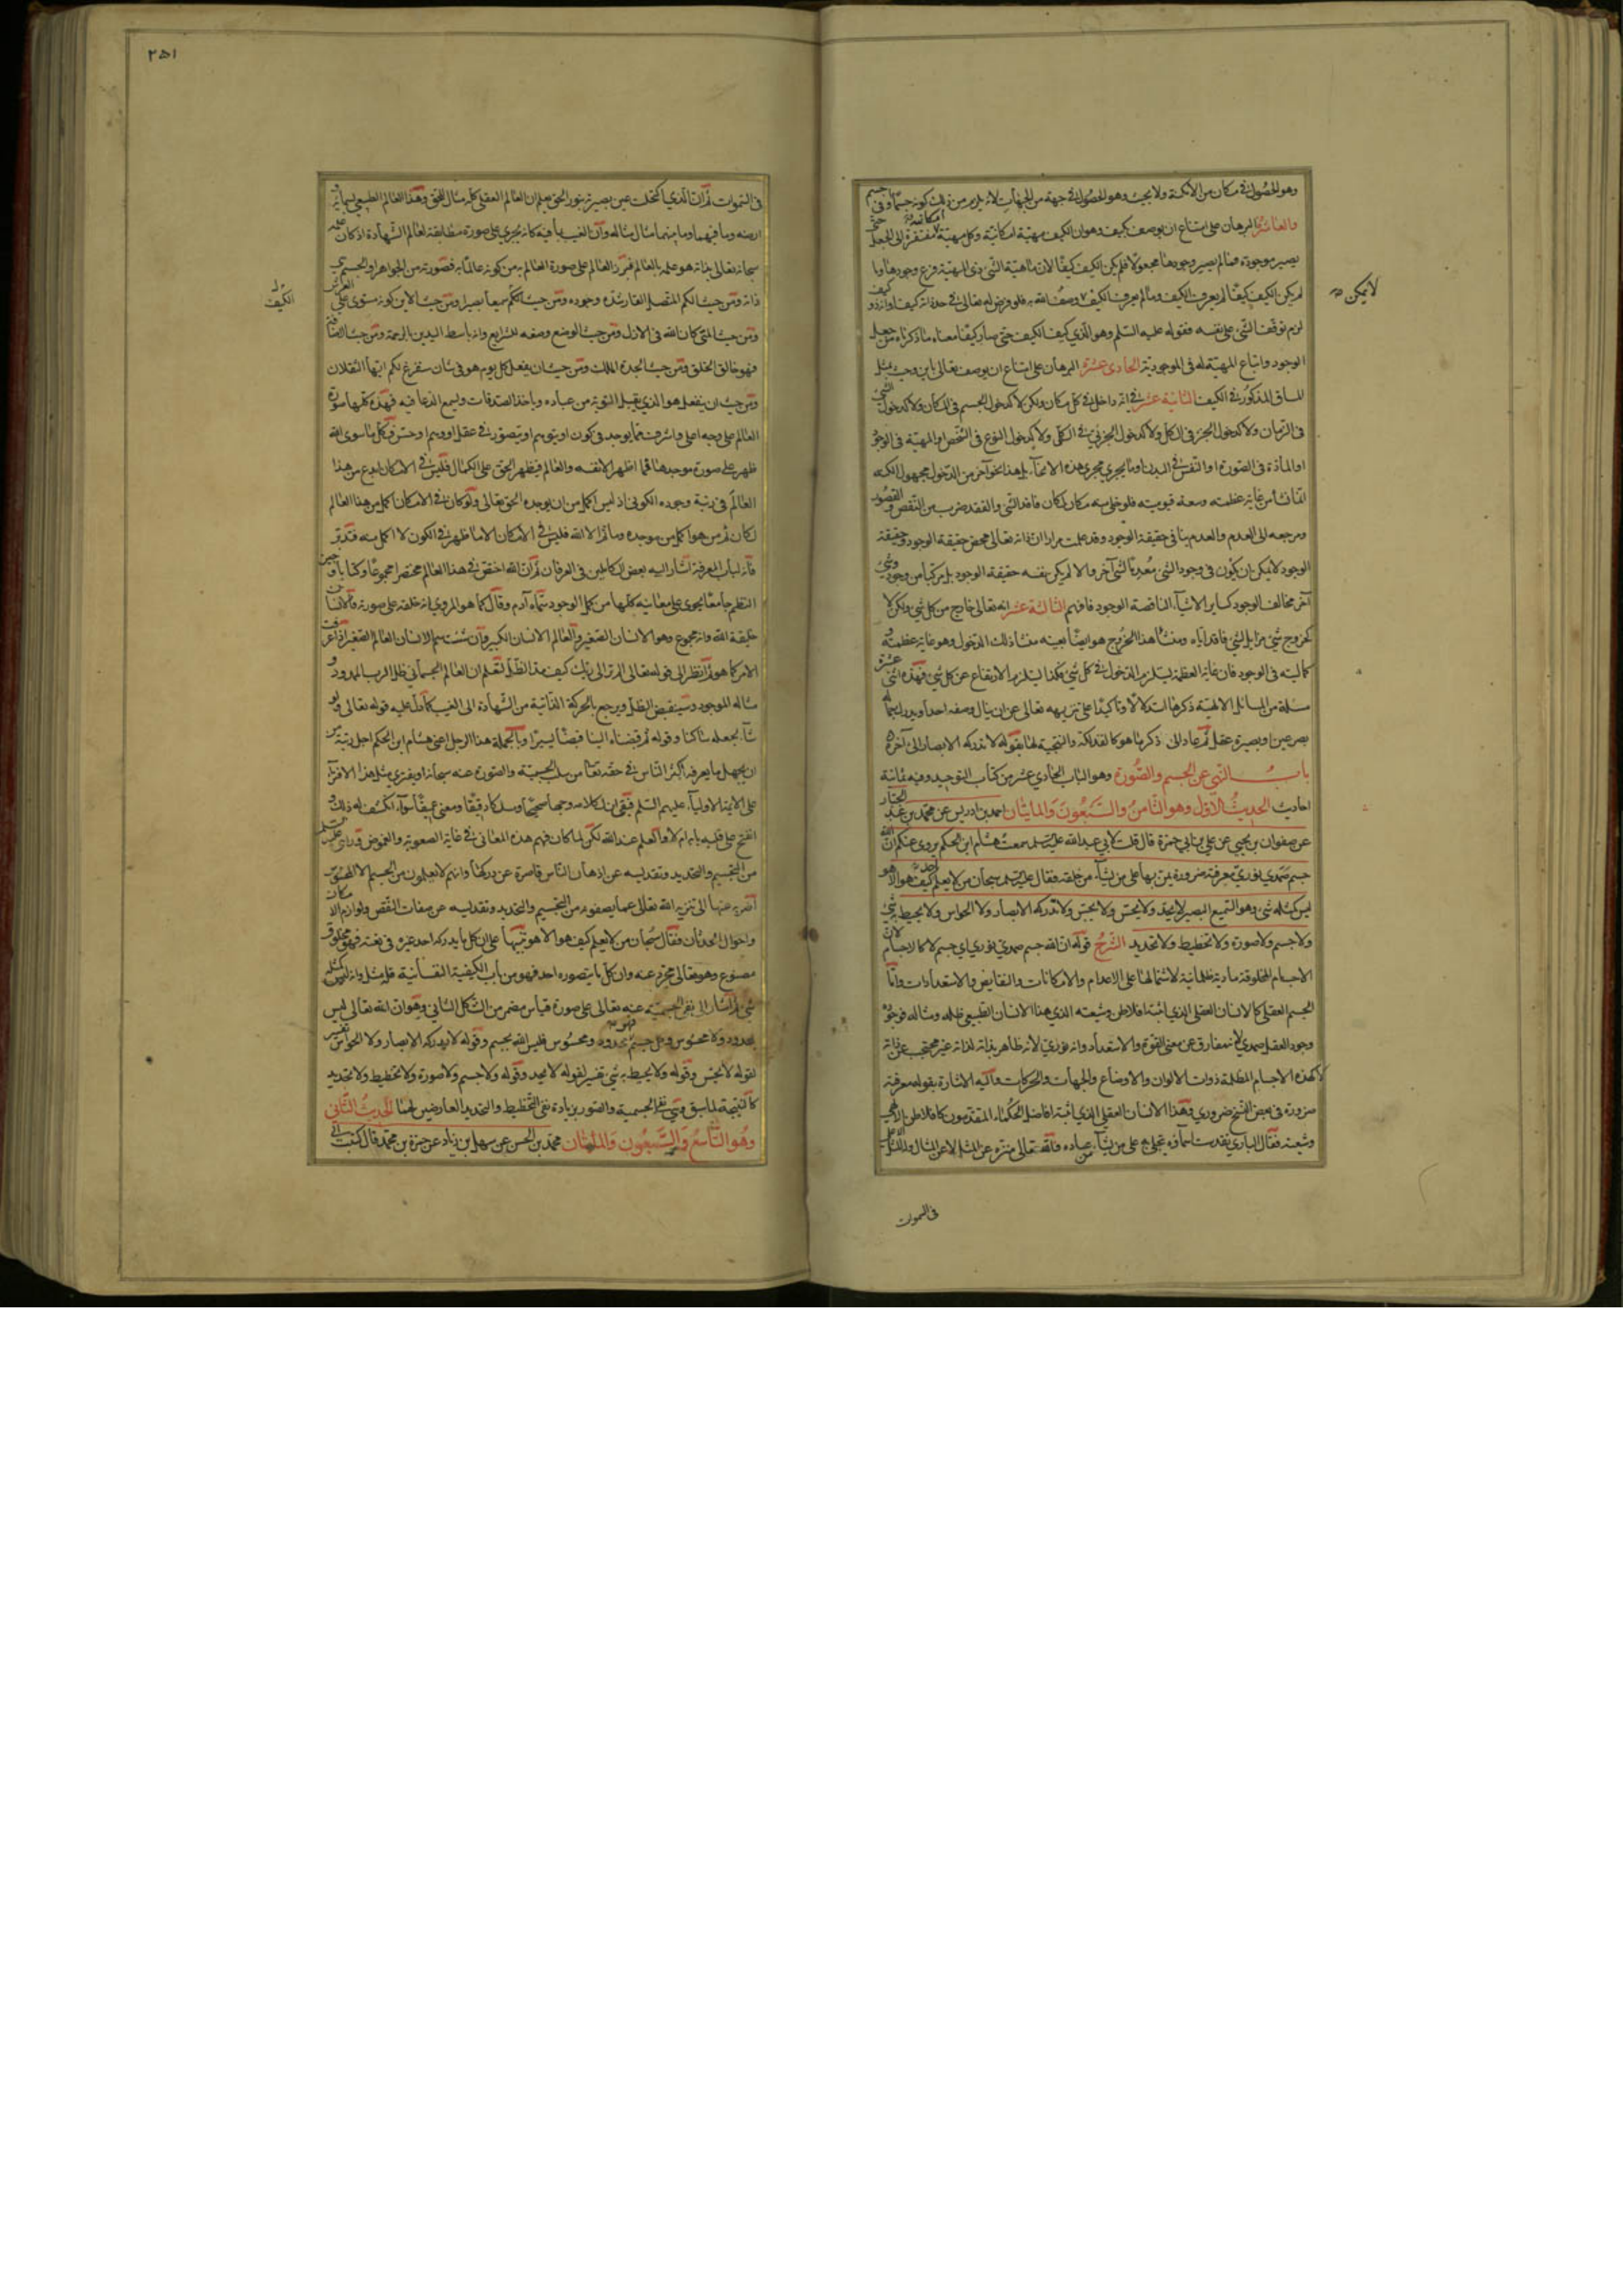 وهو الحصول في مكان من الأمكنة ولا بحيث وهو الحصول في جهة من الجهات لانه يلزم من ذلك كونه جسما او في جسم
والعاشرة البرهان على امتناع ان يوصف بكيف وهو ان الكيف مهية امكانية وكل مهية امكانية مفتقرة الى الجعل حتى
يصير موجودة فما لم يصير وجودها مجعولا فلم يكن الكيف كيفا لان ماهية الشي ذي المهية فرع وجودها وما
لم يكن الكيف كيفا لم يعرف الكيف وما لم يعرف الكيف لا يمكن وصف الله به فلو فرض له تعالى في حد ذاته كيف
لزم توقف الشي على نفسه فقوله عليه السلم وهو الذي كيف الكيف حتى صار كيفا معناه ما ذكرناه من جعله
الوجود واتباع المهية له في الموجودية الحادى عشرة البرهان على امتناع ان يوصف تعالى باين وحيث بمثل
المساق المذكور في الكيف الثانية عشر في انه داخل في كل مكان ولكن لا كدخول الجسم في المكان ولا كدخول الشي
في الزمان ولا كدخول الجزء في الكل ولا كدخول الجزئي في الكلي ولا كدخول النوع في الشخص او المهية في الوجود
او المادة في الصورة او النفس في البدن او ما يجري مجرى هذه الانحاء بل هذا نحو آخر من الدخول مجهول الكنه
انما نشأ من غاية عظمته وسعة قيوميته فلو خلى منه مكان لكان فاقد الشي والفقد ضرب من النقص والقصور
ومرجعه الى العدم والعدم ينافى حقيقة الوجود وقد علمت مرارا ان ذاته تعالى محض حقيقة الوجود وحقيقة
الوجود لا يمكن ان يكون في وجود الشي معدما لشي آخر والا لم يكن نفسه حقيقة الوجود بل مركبا من وجود وشي
آخر مخالف الوجود كساير الاشياء الناقصة الوجود فافهم الثالثة عشر انه تعالى خارج من كل شي ولكن لا
كخروج شي مزايل لشي فاقد اياه ومنشأ هذا الخروج هو ايضا بعينه منشأ ذلك الدخول وهو غاية عظمته و
كماليته في الوجود فان غاية العظمة يستلزم الدخول في كل شي هكذا يستلزم الارتفاع عن كل شي فهذه اثنى عشرة
مسئلة من المسائل الالهية ذكرها استدلالا وتاكيدا على تنزيهه تعالى عن ان ينال وصفه احد او يدرك
بصر عين او بصيرة عقل ثم عاد الى ذكر ما هو كالفذلكة والنتيجة لها بقوله لا تدركه الابصار الى آخره
باب النهي عن الجسم والصورة وهو الباب الحادي عشر من كتاب التوحيد وفيه ثمانية
احاديث الحديث الاول وهو الثامن والسبعون والمايتان احمد بن ادريس عن محمد بن عبد الجبار
عن صفوان بن يحيى عن علي بن ابي حمزة قال قلت لابي عبد الله عليه السلم سمعت هشام ابن الحكم يروى عنكم ان الله
جسم صمدي نوري معرفته ضرورة يمن بها على من يشاء من خلقه فقال عليه السلم سبحان من لا يعلم احد كيف هو الا هو
ليس كمثله شي وهو السميع البصير لا يحد ولا يحس ولا يجس ولا تدركه الابصار ولا الحواس ولا يحيط به شي
ولا جسم ولا صورة ولا تخطيط ولا تحديد الشرح قوله ان الله جسم صمدي نوري اي جسم لا كالاجسام لان
الاجسام المخلوقة مادية ظلمانية لاشتمالها على الاعدام والامكانات والنقايص والاستعدادات واما
الجسم العقلى كالانسان العقلى الذي اثبته افلاطن وشيعته الذي هذا الانسان الطبيعي ظله ومثاله فوجوده
وجود العقل صمدي لانه مفارق عن معنى القوة والاستعداد وانه نوري لانه ظاهر بذاته لذاته غير محتجب عن ذاته
لا كهذه الاجسام المظلمة ذوات الالوان والاوضاع والجهات والحركات واليه الاشارة بقوله معرفته
ضرورة في بعض النسخ ضروري وهذا الانسان العقلي الذي اثبته افاضل الحكماء المتقدمون كافلاطن الالهي
وشيعته فقال الباري تقدست اسماؤه يتجلى به على من يشاء من عباده فالله تعالى منزه عن المثل لا عن المثال وله المثل الاعلى
لا يمكن
في السموات
٢٥١
في السموات ثم ان الذي اكتحلت عين بصيرته بنور الحق يعلم ان العالم العقلى كله مثال للحق وهذا العالم الطبيعي بسمائه و
ارضه وما فيهما وما بينهما مثال مثاله وان الغيب بما فيه كانه يجري على صورة مطابقة لعالم الشهادة اذ كان علمه
سبحانه تعالى بذاته هو علمه بالعالم فبرز العالم على صورة العالم به من كونه عالما به فصورته من الجواهر
ذاته ومن حيث الكم المتصل القار وجوده ومن حيث الكم سميعا بصيرا ومن حيث الاين كونه مستوى على العرش
ومن حيث المتى كان الله في الازل ومن حيث الوضع وصفه للشرايع وانه باسط اليدين بالرحمة ومن حيث الاضافة
فهو خالق الخلق ومن حيث الجدة مالك الملك ومن حيث ان يفعل كل يوم هو في شان سنفرغ لكم ايها الثقلان
ومن حيث ان ينفعل هو الذي يقبل التوبة من عباده وياخذ الصدقات ويسمع الدعا فيه فهذه كلها صورة
العالم على وجه اعلى واشرف مما يوجد في كون او يتوهم او يتصور في عقل او وهم او حس فكل ما سوى الله
ظهر على صورة موجدها فما اظهر الا نفسه والعالم فيظهر الحق على الكمال فليس في الامكان ابدع من هذا
العالم في رتبة وجوده الكونى اذ ليس اكمل من ان يوجده الحق تعالى ولو كان في الامكان اكمل من هذا العالم
لكان ثم من هو اكمل من موجده وما ثم الا الله فليس في الامكان الا ما ظهر في الكون لا اكمل منه فتدبر
فانه لباب المعرفة اشار اليه بعض الكاملين في العرفان ثم ان الله اختص في هذا العالم مختصرا مجموعا وكتابا وجيز
النظم جامعا يحوى على معانيه كلها من كل الوجود سماه آدم وقال كما هو المروي انه خلقه على صورته فالانسان
خليفة الله وانه مجموع وهو الانسان الصغير والعالم الانسان الكبير وان شئت سم الانسان العالم الصغير اذا عرفت
الامر كما هو ثم انظر الى قوله تعالى الم تر الى ربك كيف مد الظل لتعلم ان العالم الجسماني ظل الرب الممدود و
مثاله الموجود وسينقبض الظل ويرجع بالحركة الذاتية من الشهادة الى الغيب كما دل عليه قوله تعالى ولو
شاء لجعله ساكنا وقوله ثم قبضناه الينا قبضا يسيرا وبالجملة هذا الرجل اعنى هشام ابن الحكم اجل رتبة من
ان يجهل ما يعرفه اكثر الناس في حقه تعالى من سلب الجسمية والصورة عنه سبحانه او يفترى مثل هذا الافتراء
على الائمة الاولياء عليهم السلم فبقي ان لكلامه وجها صحيحا ومسلكا دقيقا ومعنى عميقا سواء انكشف له ذلك و
انفتح على قلبه بابه ام لا والعلم عند الله لكن لما كان فهم هذه المعانى في غاية الصعوبة والغموض
من التجسيم والتحديد وتقديسه عن اذهان الناس قاصرة عن دركها وانهم لا يعلمون من الجسم الا المحسوس
الى تنزيه الله تعالى عما يصفونه من التجسيم والتحديد وتقديسه عن صفات النقص ولوازم الامكان
واحوال الحدثان فقال سبحان من لا يعلم كيف هو الا هو تنبيها على ان كل ما يدركه احد غيره في نفسه فهو مخلوق
مصنوع وهو تعالى مجرد عنه وان كل ما يتصوره احد فهو من باب الكيفية النفسانية فله مثل وانه ليس كمثله
شي ثم اشار الى نفي الجسمية عنه تعالى على صورة قياس مضمر من الشكل الثاني وهو ان الله تعالى ليس
بمحدود ولا محسوس وكل جسم فهو محدود ومحسوس فليس الله بجسم وقوله لا يدركه الابصار ولا الحواس تفسير
لقوله لا يحس وقوله ولا يحيط به شي تفسير لقوله لا يحد وقوله ولا جسم ولا صورة ولا تخطيط ولا تحديد
كالنتيجة لما سبق وهي نفي الجسمية والصورة بزيادة نفي التخطيط والتحديد العارضين لهما الحديث الثاني
وهو التاسع والسبعون والمايتان محمد بن الحسن عن سهل بن زياد عن حمزة بن محمد قال كتبت الى
الكيف